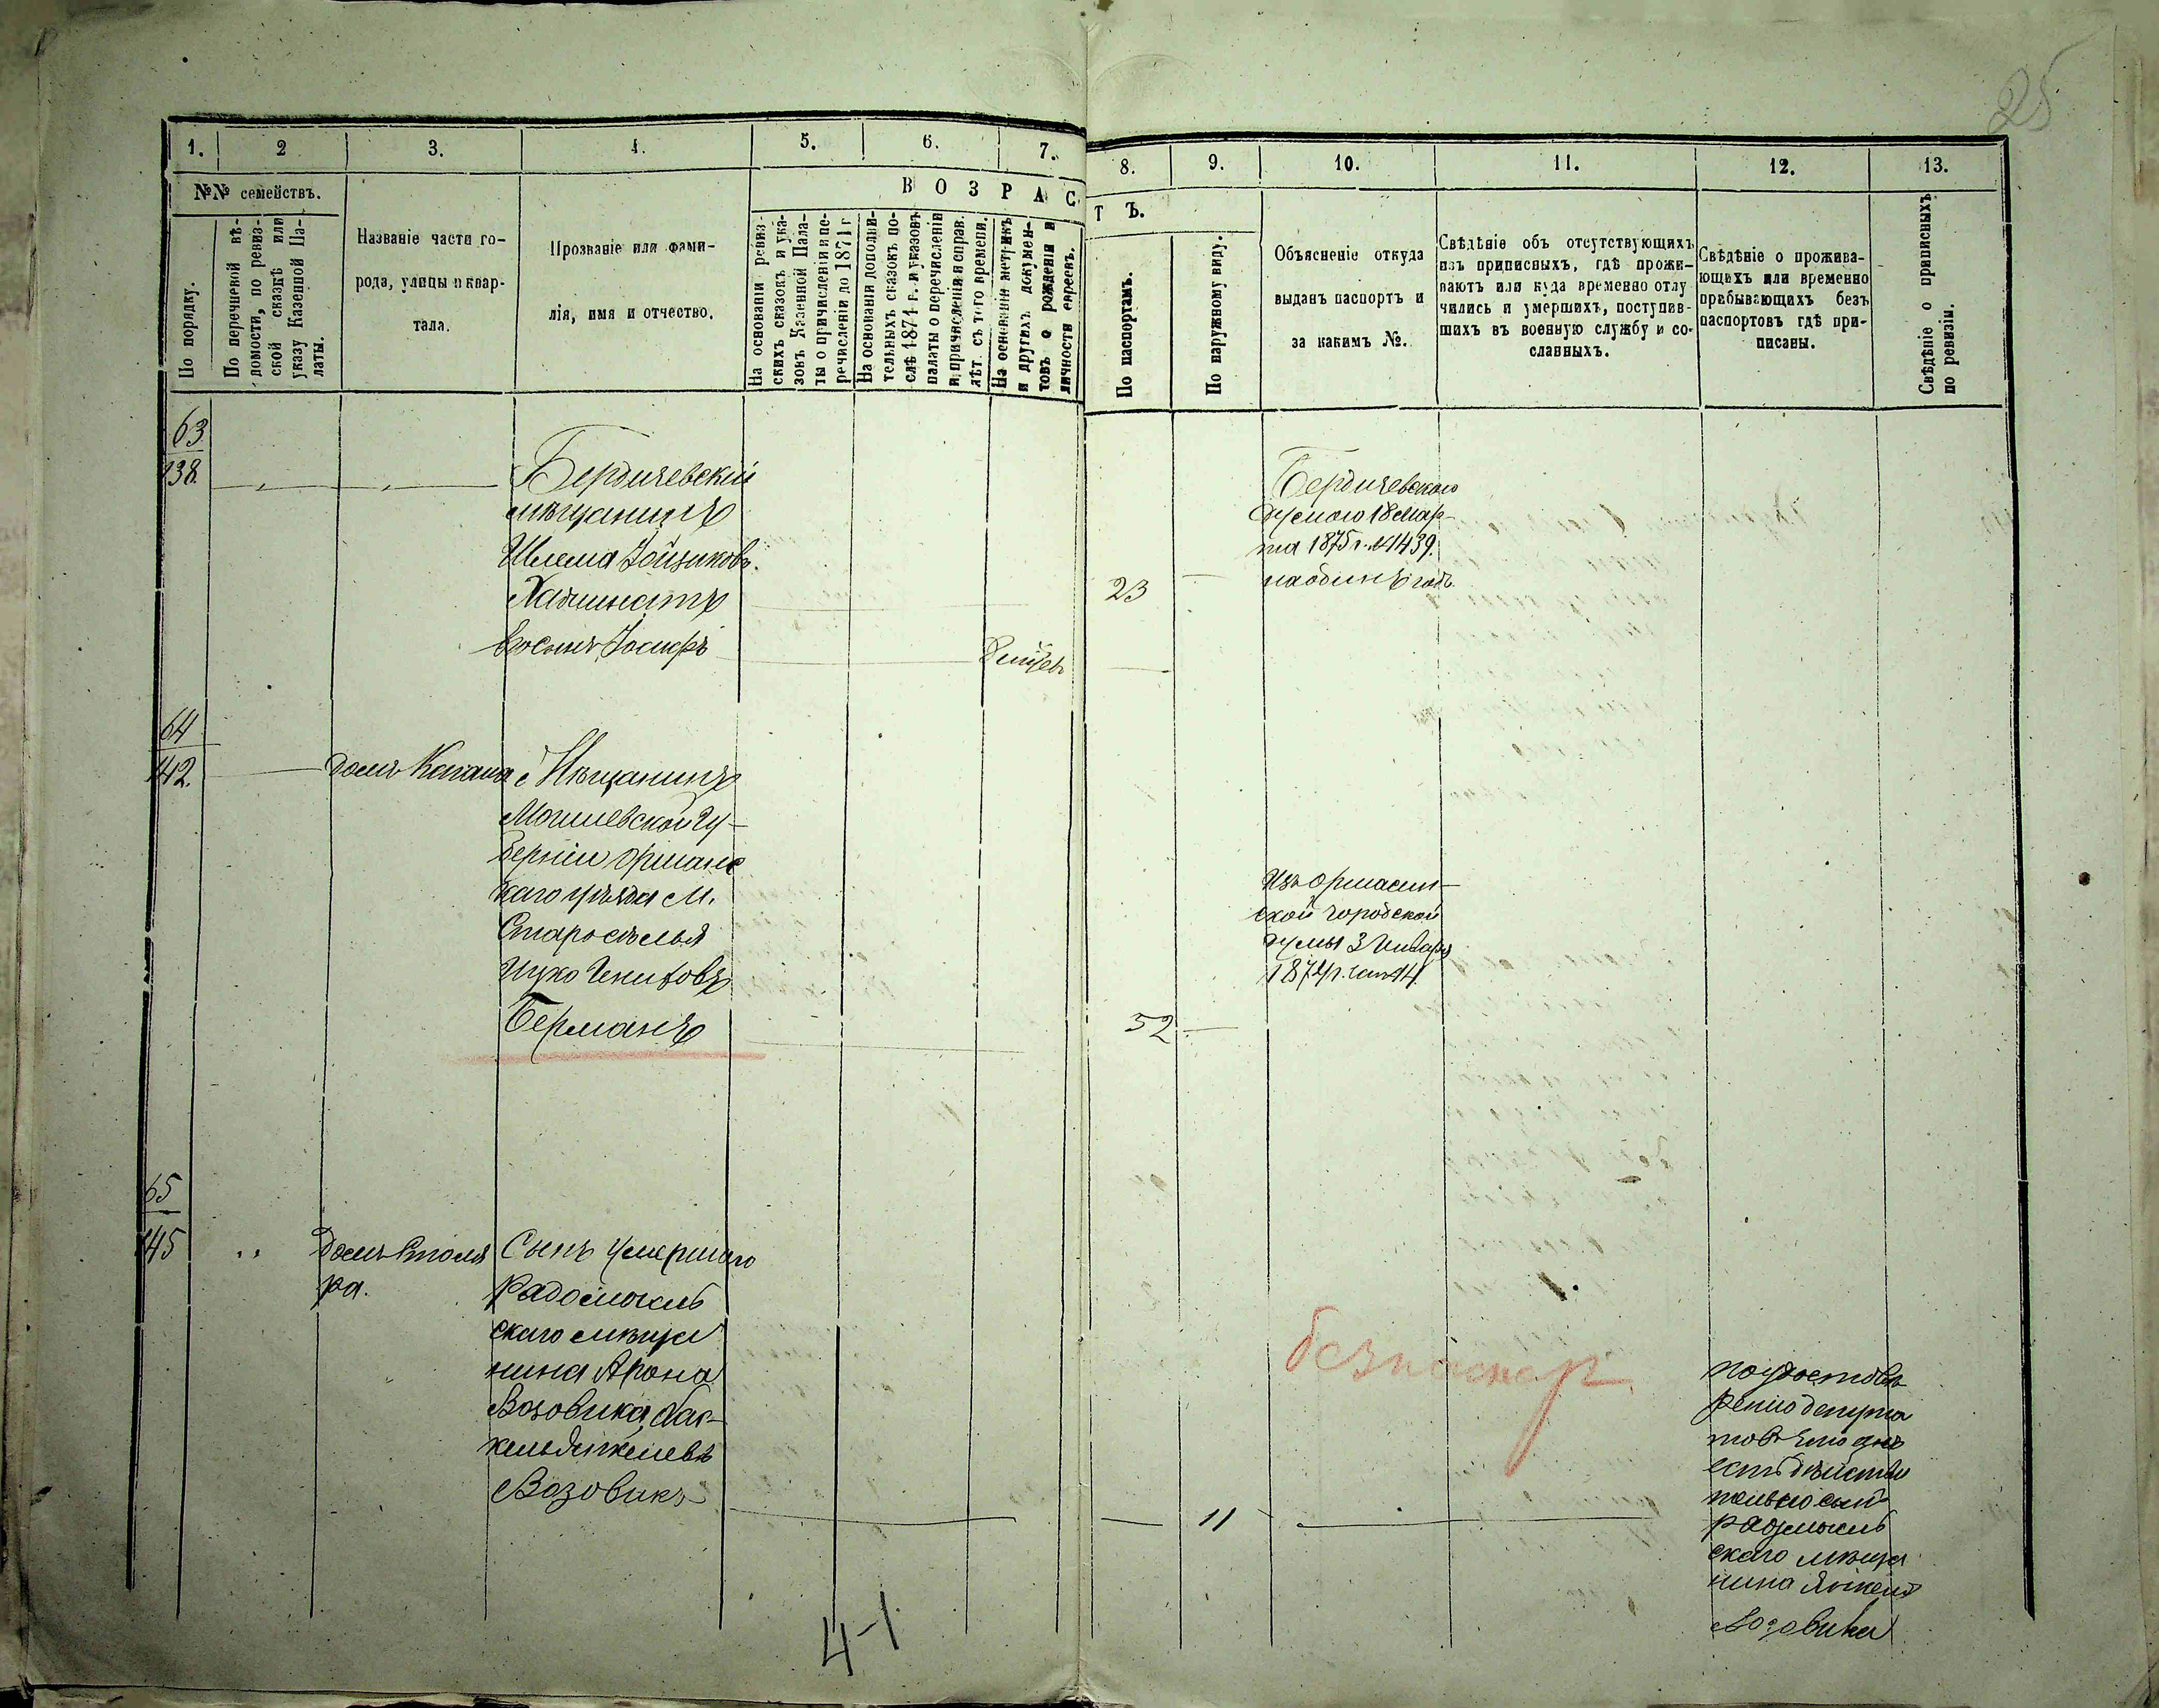 25
1. 2 3. 4. 5. 6. 7. 8. 9. 10. 11. 12. 13.
№№ семействъ.
По порядку.
По перечневой вѣ-
домости, по ревиз-
ской сказкѣ или
указу Казенной Па-
латы.
Названіе части го-
рода, улицы и квар-
тала.
Прозваніе или фами-
лія, имя и отчество.
ВОЗРАСТЪ.
На основаніи ревиз-
скихъ сказокъ и ука-
зовъ Казенной Пала-
ты о причисленіи и пе-
речисленіи до 1871 г
На основаніи дополни-
тельныхъ сказокъ по-
слѣ 1874 г. и указовъ
палаты о перечисленіи
и причисленіи и справ.
лѣт. съ того времени.
На основаніи метрикъ
и другихъ докумен-
товъ о рожденіи и
личности евреевъ.
По паспортамъ.
По наружному виду.
Объясненіе откуда
выданъ паспортъ и
за какимъ №.
Свѣдѣніе объ отсутствующихъ
изъ приписныхъ, гдѣ прожи-
ваютъ или куда временно отлу
чились и умершихъ, поступив-
шихъ въ военную службу и со-
славныхъ.
Свѣдѣніе о прожива-
ющихъ или временно
прабывающихъ безъ
паспортовъ гдѣ при-
писаны.
Свѣдѣніе о приписныхъ
по ревизіи.
63
138.
Бердичевскій
мѣщанинъ
Шлема Іойзиковъ.
Его сынъ Іосифъ
23
Бердичевского
Думою 18 Мар-
та 1875 г. №1439.
на одинъ годъ.
64
142.
Домъ Кагана
Мѣщанинъ
Могилевской Гу-
берніи Оршанс
каго уѣзда М.
Старосѣлья
Ицко
Берманъ
52
Изъ Оршанн-
ской городской
Думы 3 Января
65
145
Домъ Столя
ра.
Сынъ умершаго
Радомысль
скаго мѣща
нина Арона
Возовика,
Возовикъ
11
безпаспор
по удостовѣ
ренію депута
товъ что онъ
есть дѣйстви
тельно сынъ
радомысль
скаго мѣща
нина
Возовика
4-1